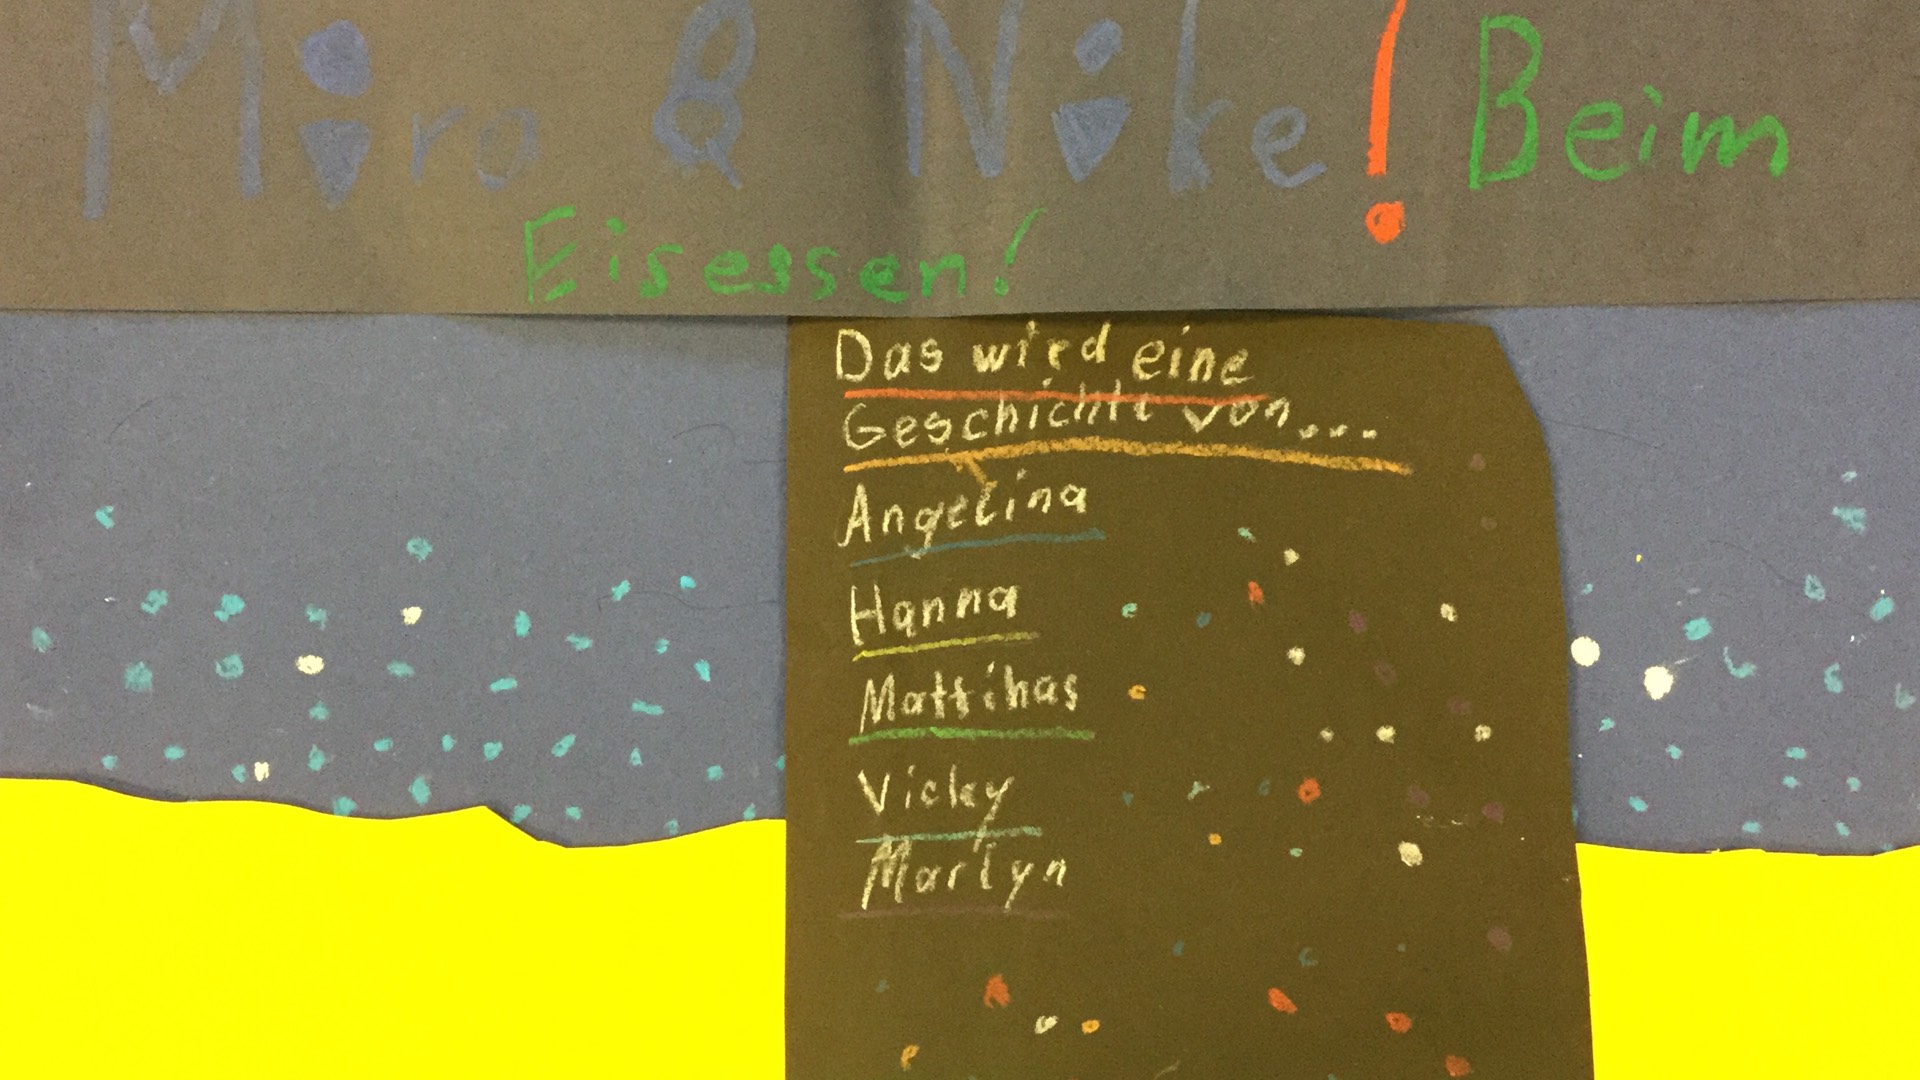 Miro & Nike! Beim
Eisessen!
Das wird eine
Geschichte von...
Angelina
Hanna
Mattihas
Vicky
Marlyn